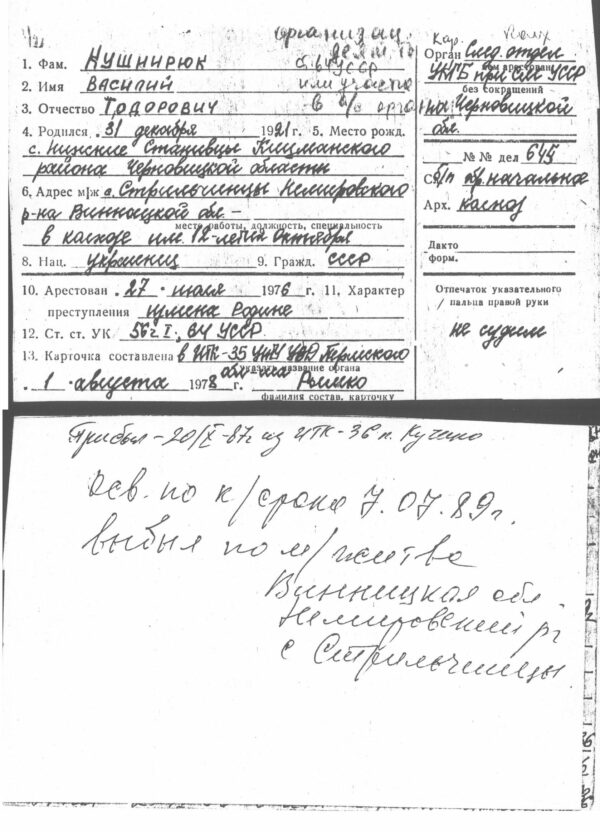 организац.
деят. ть
ст. 64 УССР
или участие
в а/с орга-
1. Фам. КУШНИРЮК
2. Имя ВАСИЛИЙ
3. Отчество ТОДОРОВИЧ
4. Родился 31 декабря 1921 г. 5. Место рожд.
с. Нижние Становцы Кицманского
района Черновицкой области
6. Адрес м/ж с. Стрильчинцы Немировского
р-на Винницкой обл. –
место работы, должность, специальность
в колхозе им. 12-летия Октября
8. Нац. украинец 9. Гражд. СССР
10. Арестован 27 июля 1976 г. 11. Характер
преступления измена Родине
12. Ст. ст. УК 56 ч. I, УК УССР
13. Карточка составлена в ИТК-35 УИТУ УВД Пермского
указать название органа
1 августа 1978 г.
фамилия состав. карточку
Кар.
Орган След. отдел
кем арестован
УКГБ при СМ УССР
без сокращений
по Черновицкой
обл.
№ № дел 645
Арх.
Дакто
форм.
Отпечаток указательного
пальца правой руки
не судим
Прибыл – 20/X-87г из ИТК-36 п. Кучино
Осв. по к/срока 7.07.89г.
выбыл по м/жит-ва
Винницкая обл.
Немировский р-н
с Стрильчинцы